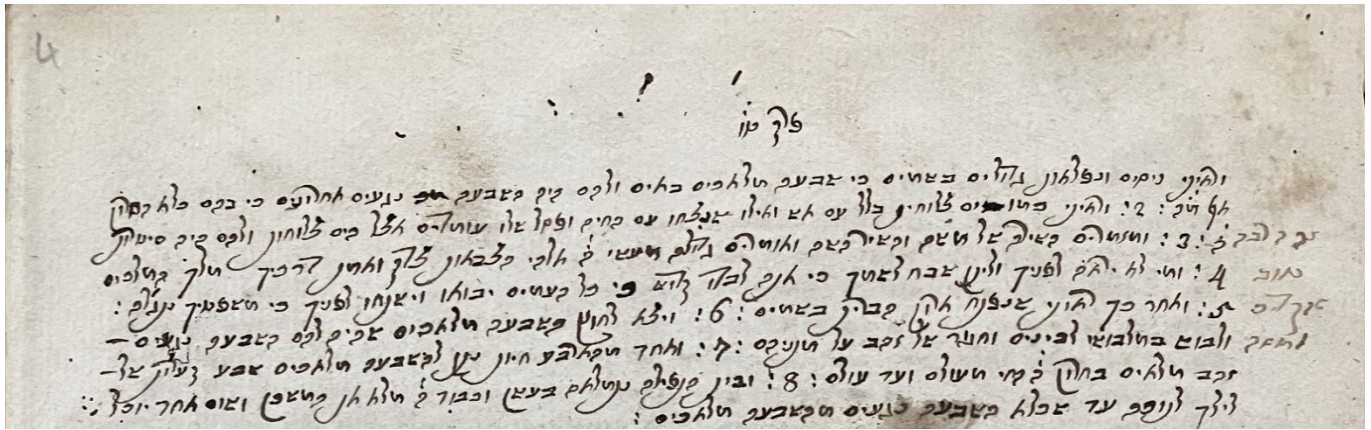 4
פרק טו
וראיתי ניסים ונפלאות גדולים בשמים כי שבעה מלאכים באים ולהם היה בשבעה נגעים אחרונים כי בהם מלא החרון
אף :2: וראיתי כמו ים צלוחית בלל עם אש ואילו שנצחו עם החיה ופסל שלו עומדים אצל הים צלוחית ולהם היה
:3: ומזמרים השירה של משה והשיר השה ואומרים גדולה מעשי ה' אלהי הצבאות צדק ואמת דרכיך מלך המלכים
כתוב 4: ומי לא ירא לפניך וליתן שבח לשמך כי אתה לבד קדוש כי כל העמים יבואו וישתחו לפניך כי משפטיך נגלה:
5: ואחר כך ראיתי שנפתח ארון הברית בשמים :6: ויצא לחוץ השבעה מלאכים שהיה להם השבעה נגעים –
ולבוש במלבושי לבינים וחגור של זהב על מתניהם :7: ואחד מהארבע חיות נתן להשבעה מלאכים שבע קערות של–
זהב מלאים בחרון ה' החי מעולם ועד עולם :8: ובית התפילה נתמלאה בעשן וכבוד ה' מלא את המשכן ושום אחד יוכל
לילך לנוכח עד שמלא השבעה נגעים מהשבעה מלאכים: